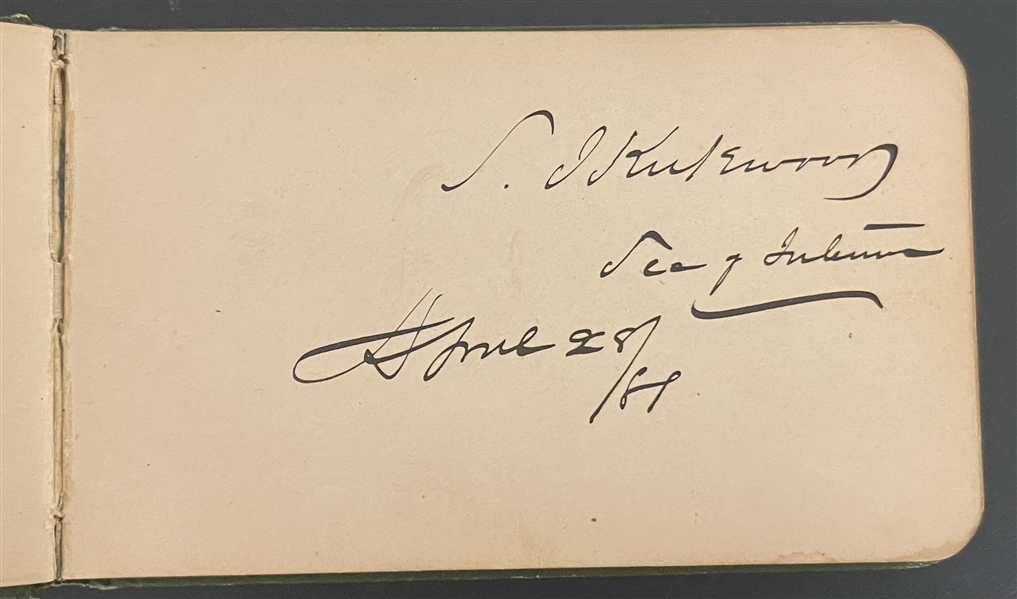 S. J Kirkwood
Sec of Interior
April 28/81